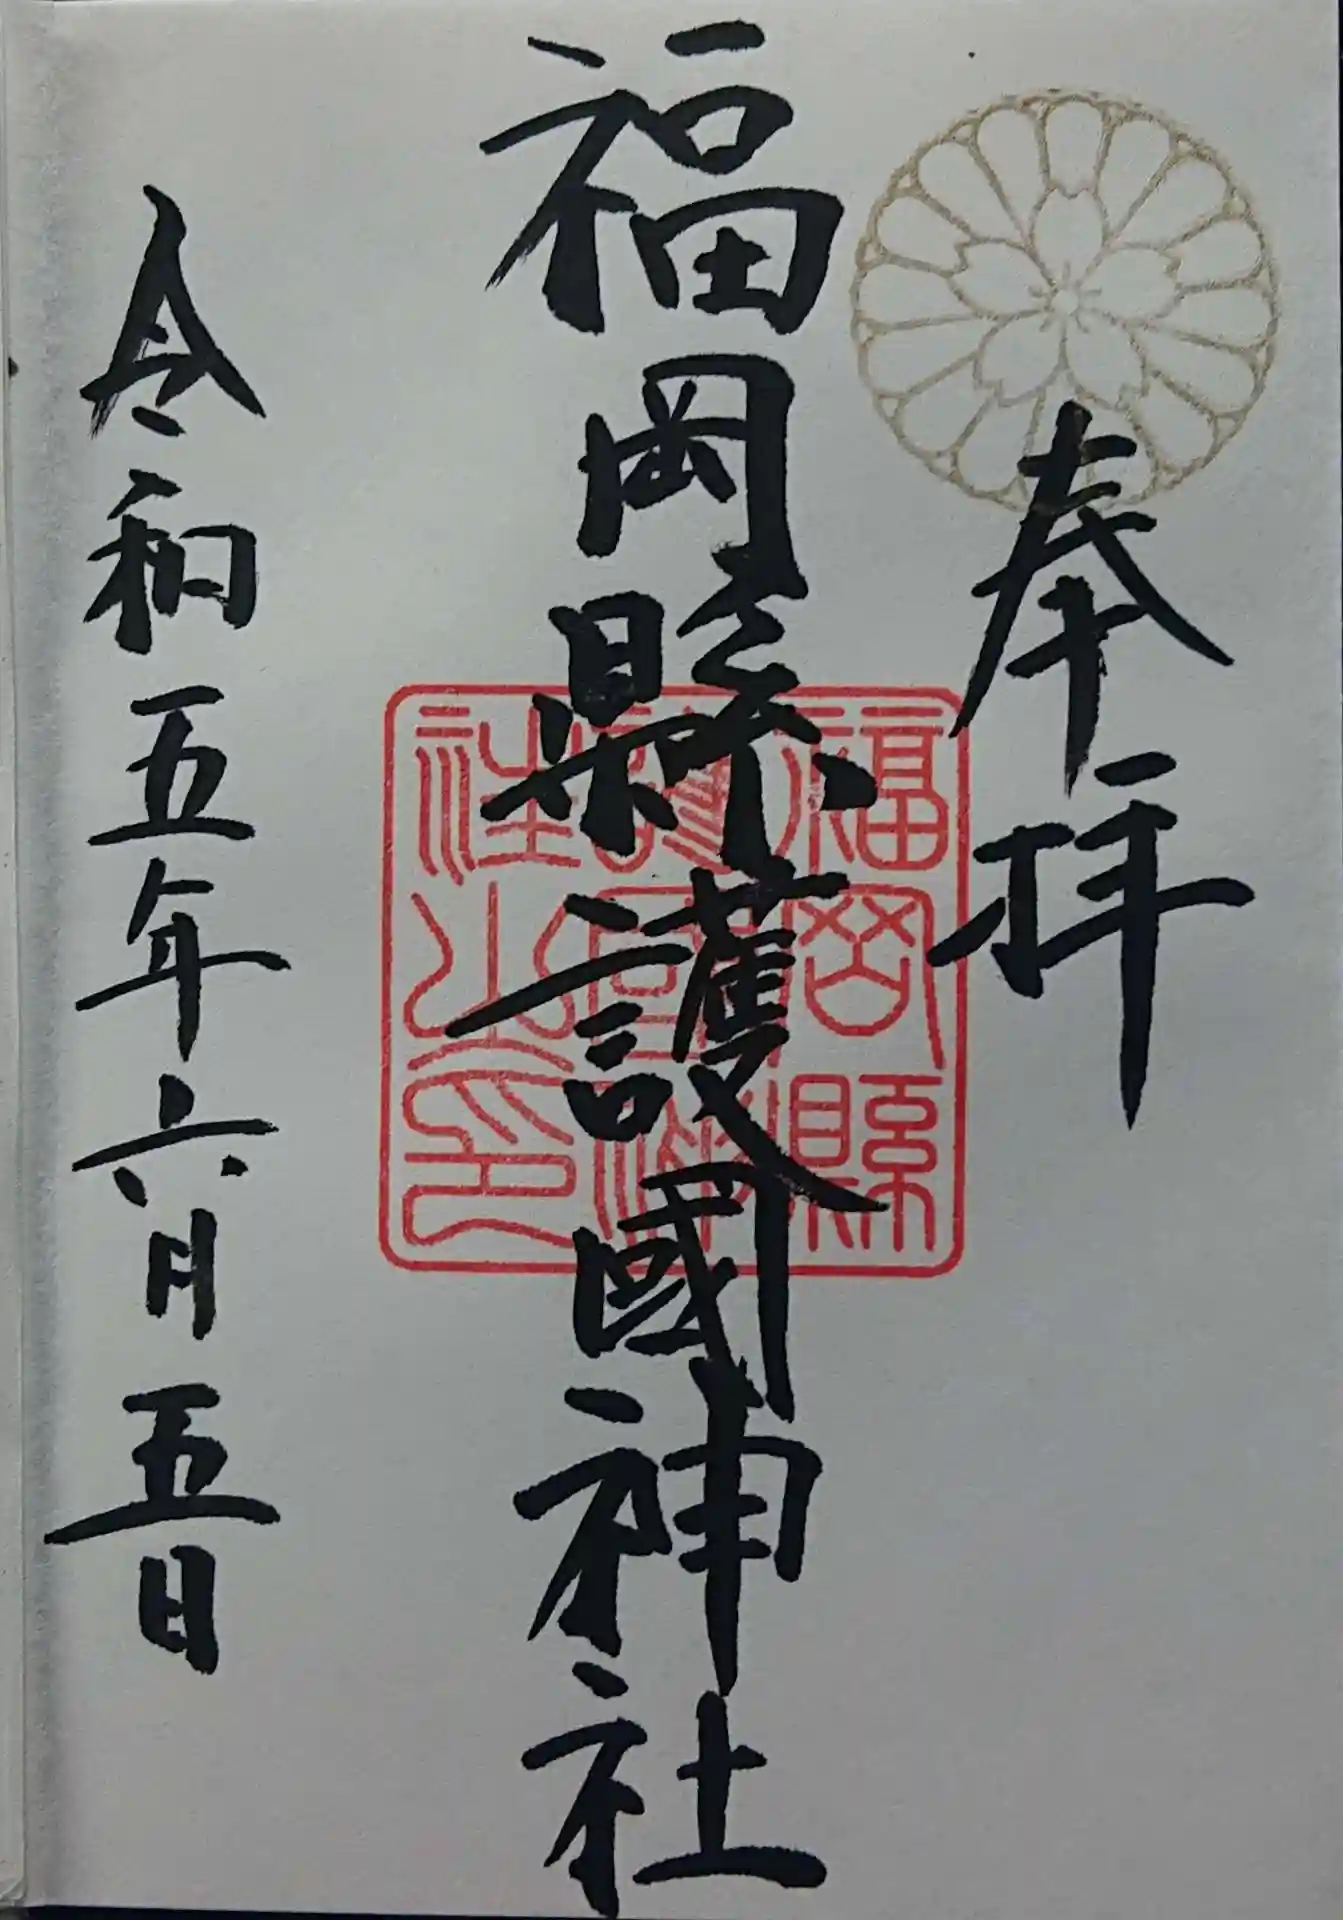 奉拝
福岡縣護國神社
福岡縣
護國神
社之印
令和五年六月五日